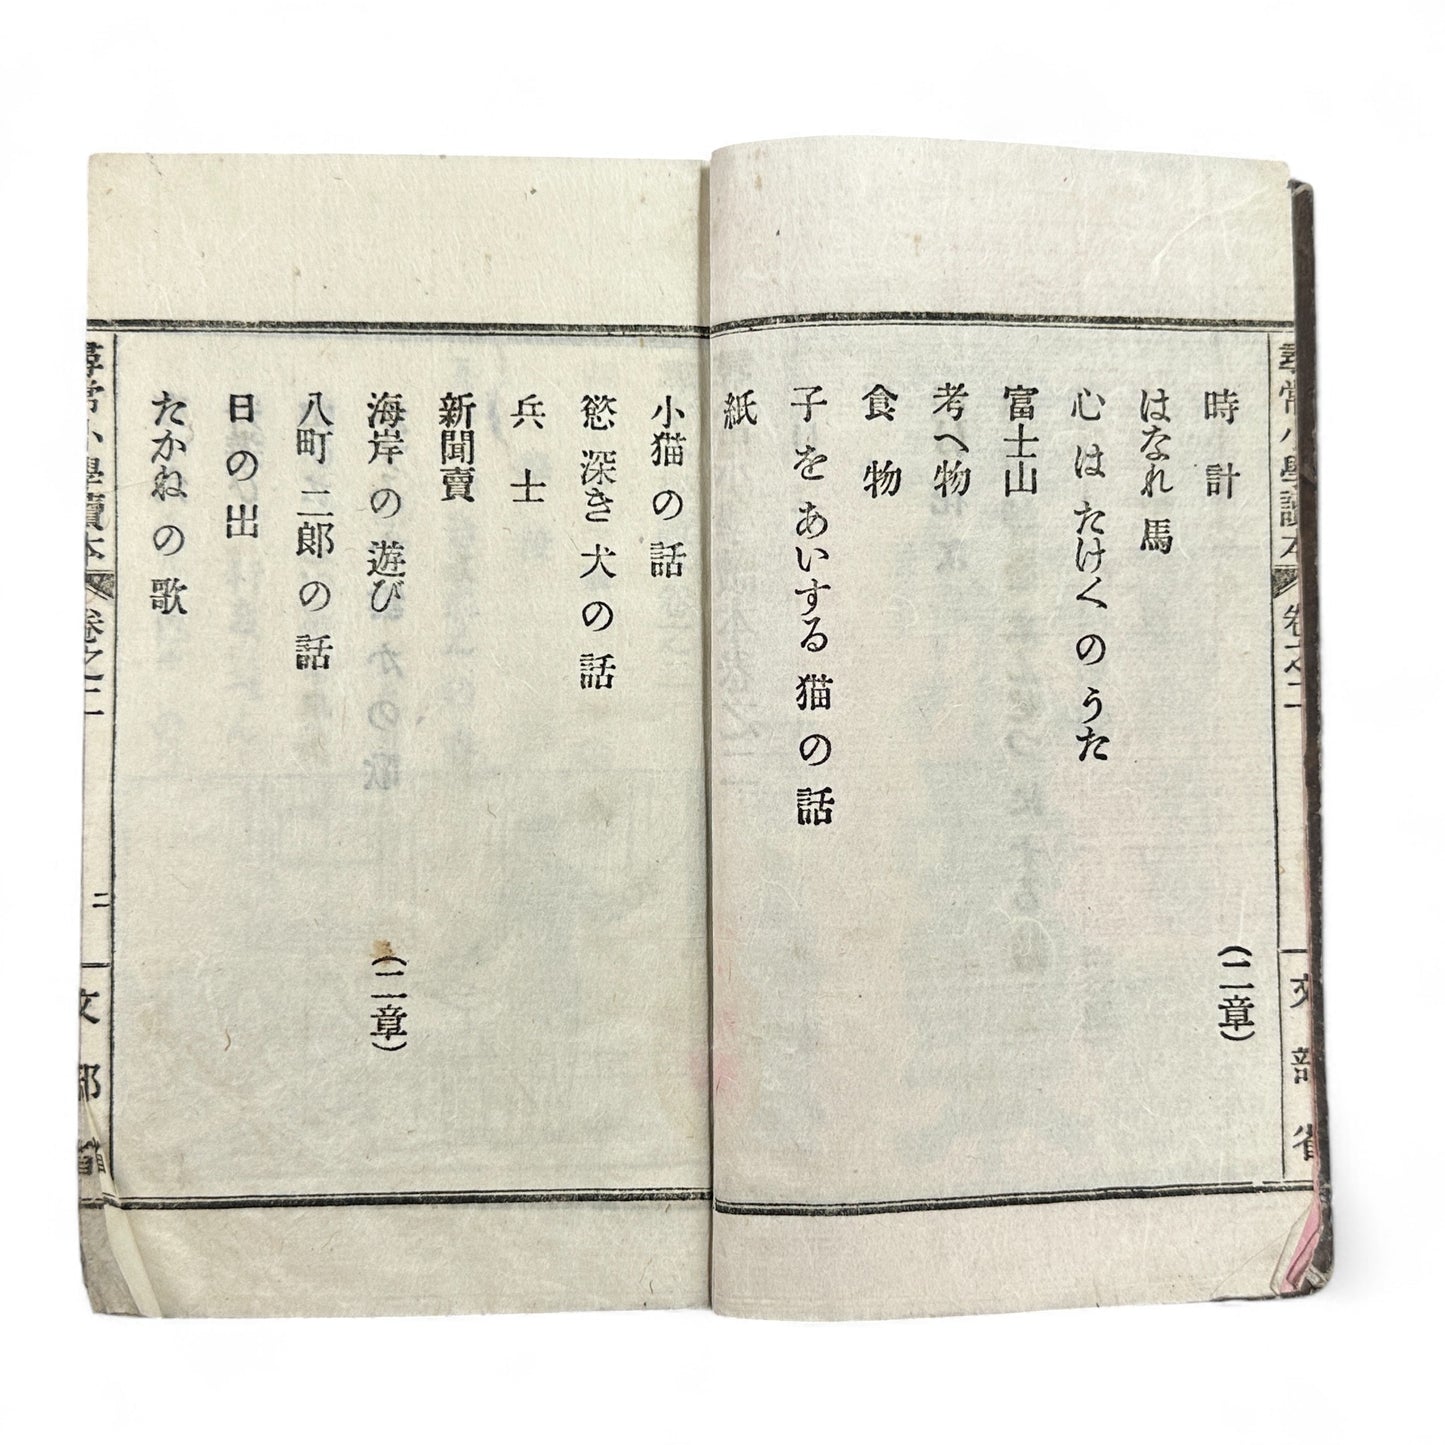 時計
（二章）
はなれ馬
心はたけくのうた
富士山
考へ物
食物
子をあいする猫の話
紙
小猫の話
慾深き犬の話
兵士
新聞賣
海岸の遊び
（二章）
八町二郎の話
日の出
たかねの歌
尋常小學讀本
卷之二
二
文部省
尋常小學讀本
卷之二
文部省